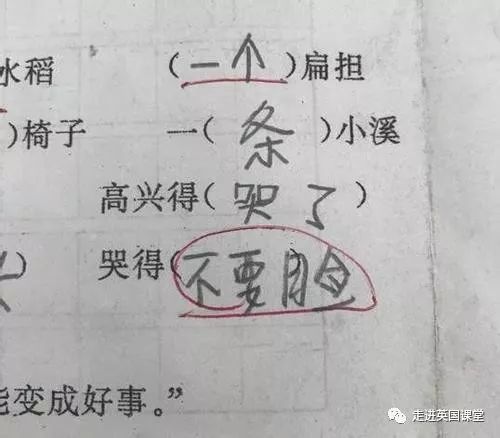 水稻 (一个)扁担
)椅子 一(条)小溪
高兴得(哭了)
) 哭得(不要脸
能变成好事。”
走进英国课堂